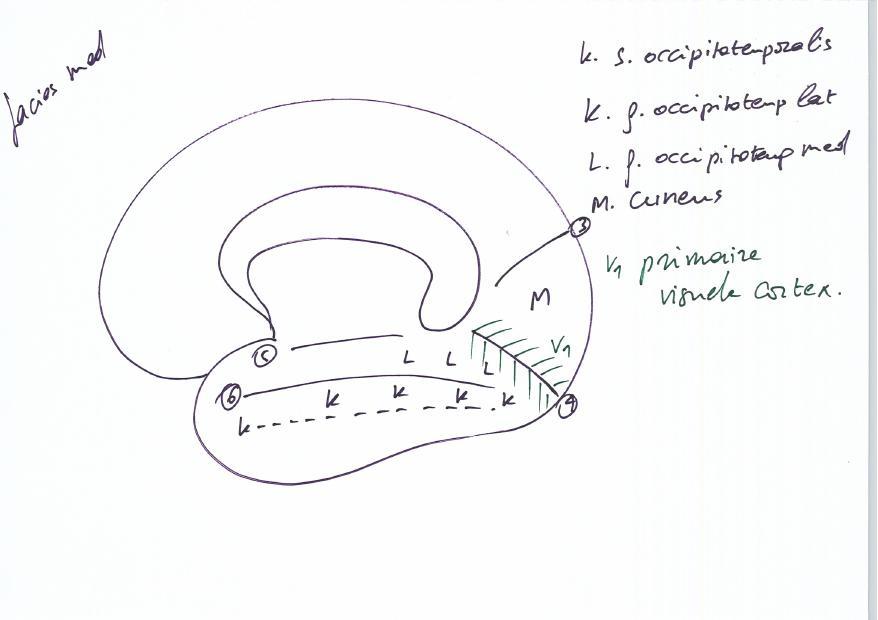 facies med
k. s. occipitotemporalis
K. g. occipitotemp lat
L. g. occipitotemp med
M. cuneus
3
V1 primaire
visuele cortex.
M
V1
5
L L L
6
k k k k
4
k